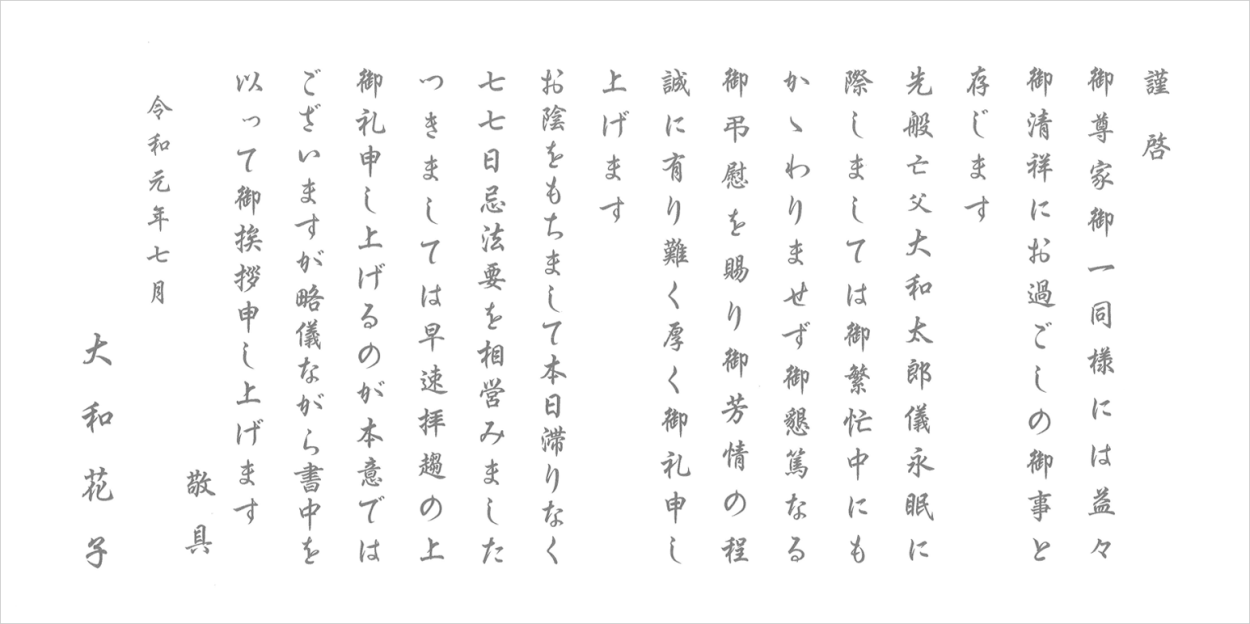 謹啓
御尊家御一同様には益々
御清祥にお過ごしの御事と
存じます
先般亡父大和太郎儀永眠に
際しましては御繁忙中にも
かゝわりませず御懇篤なる
御弔慰を賜り御芳情の程
誠に有り難く厚く御礼申し
上げます
お陰をもちまして本日滞りなく
七七日忌法要を相営みました
つきましては早速拝趨の上
御礼申し上げるのが本意では
ございますが略儀ながら書中を
以って御挨拶申し上げます
敬具
令和元年七月
大和花子